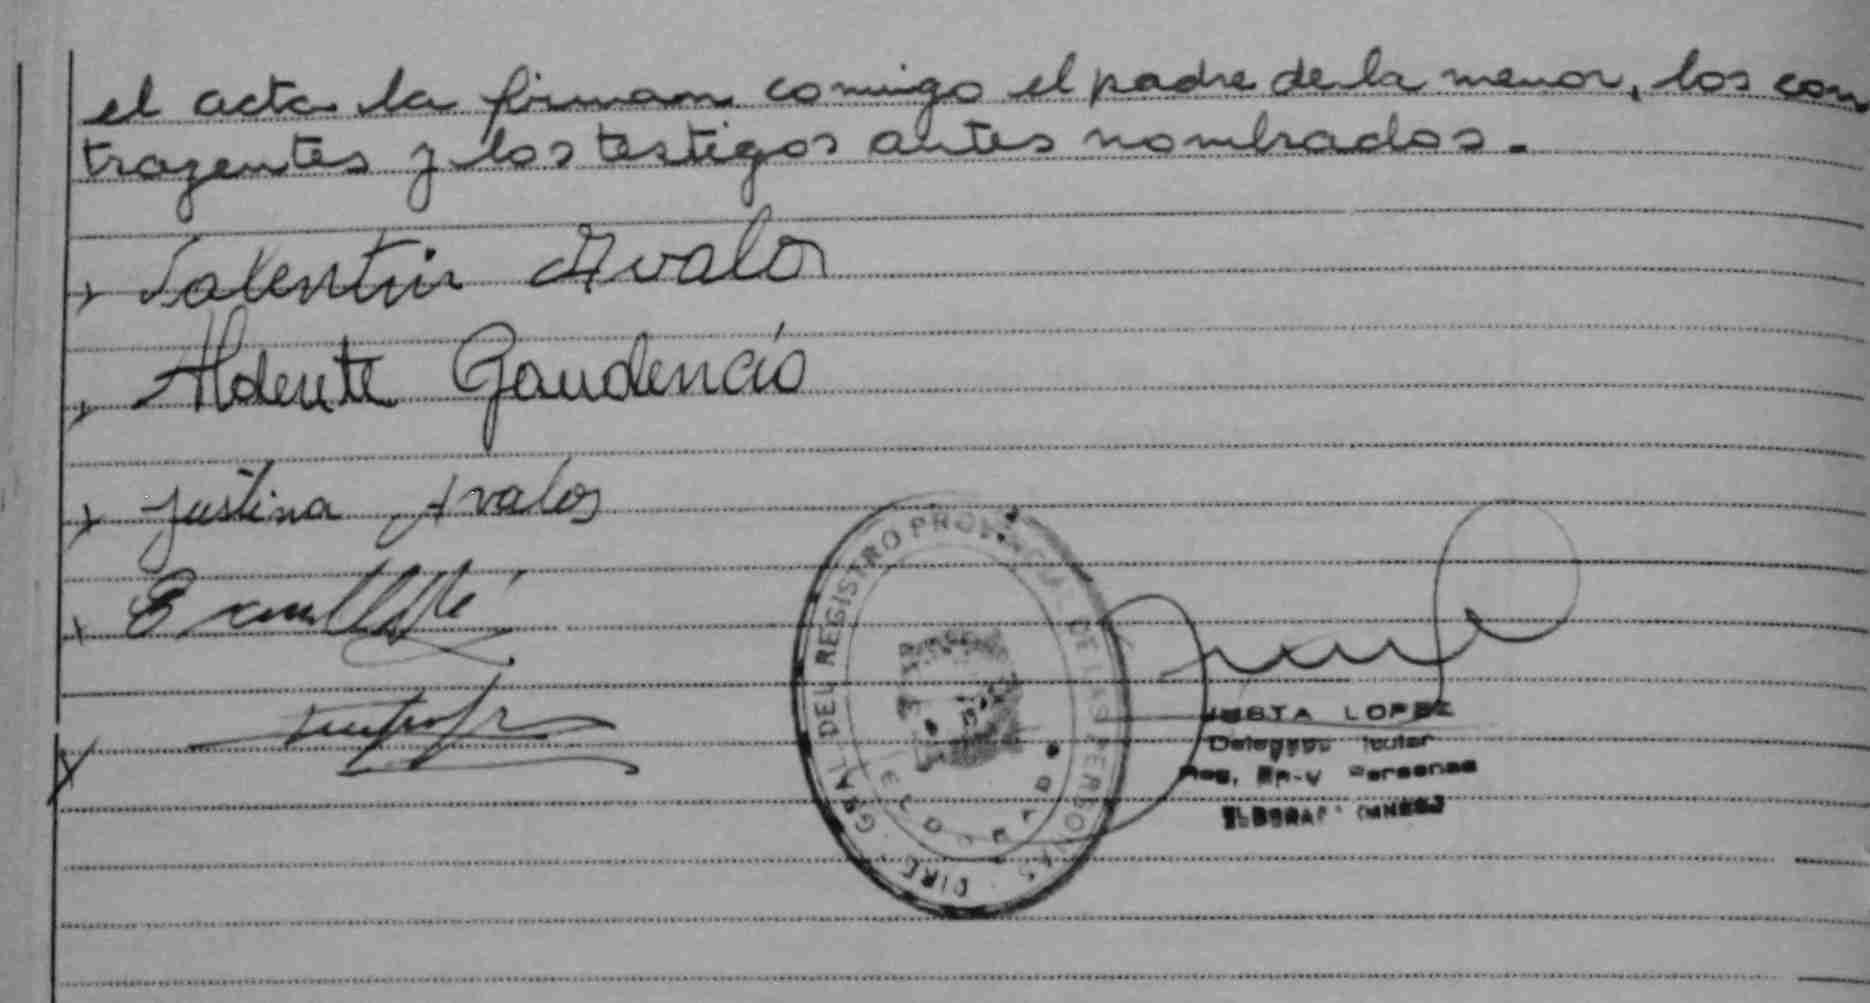 el acta la firman comigo el padre de la menor, los con
trayentes y los testigos antes nombrados.-
Valentin Avalos
Aldente Gaudencio
Justina Avalos
DIRC. GRAL DEL REGISTRO PROVINCIAL DE LAS PERSONAS
ELDORADO
LOPEZ
Delegado Titular
Reg. Personas